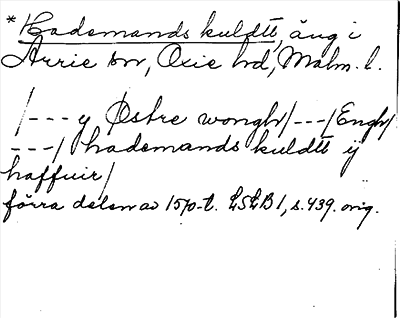 *Hademands kuldtt, äng i
Arrie sn, Oxie hd, Malm. l.
/--- y Østre wongh/---/Engh/
---/ hademands kuldtt ij
haffuir/
förra delen av 1570-t. LSLB 1, s. 439. orig.